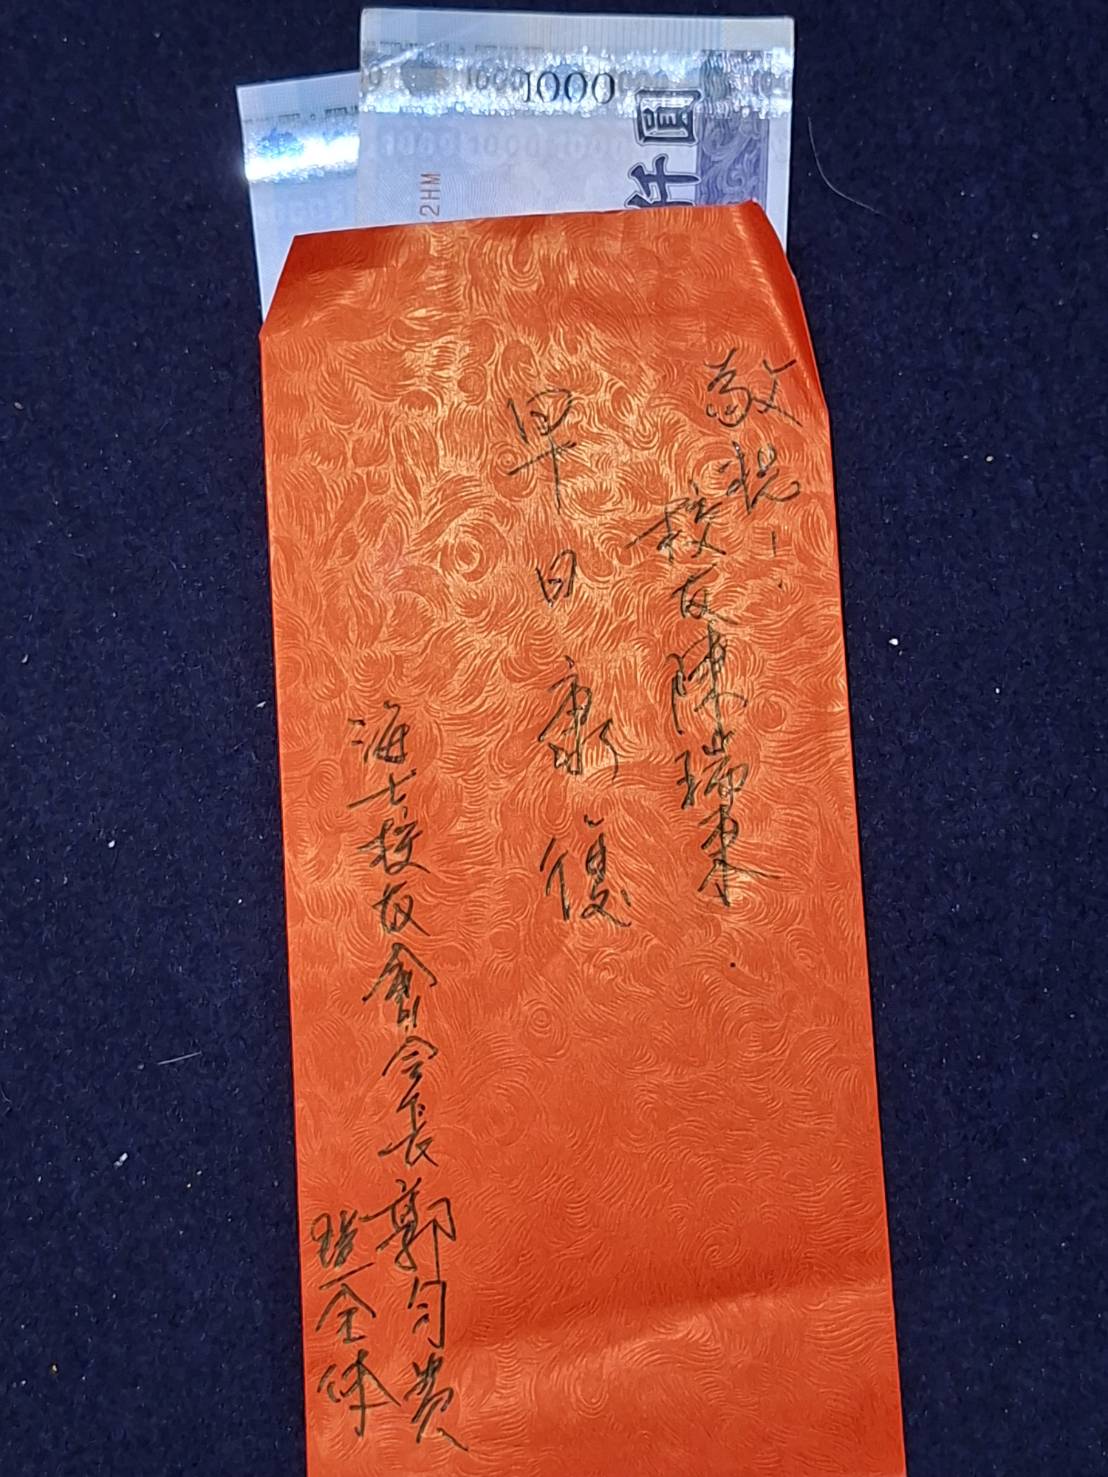 1000
仟圓
2HM
敬祝！
校友陳瑞東
早日康復
海士校友會会長郭勻貴
暨全体